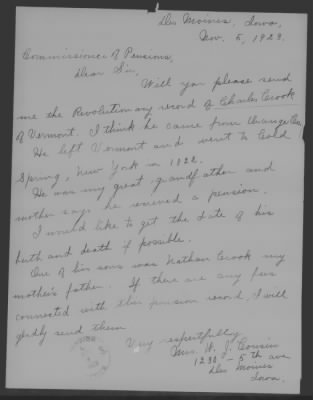 Des Moines, Iowa,
Nov. 5, 1923.
Commissioner of Pensions,
Dear Sir,
Will you please send
me the Revolutionary record of Charles Crook
of Vermont. I think he came from Orange Co.
He left Vermont and went to Cold
Spring, New York in 1822.
He was my great, grandfather and
mother says he received a pension.
I would like to get the date of his
birth and death if possible.
One of his sons was Nathan Crook my
mother's father. If there are any fees
connected with this pension record, I will
gladly send them
Very respectfully
Mrs. W. J. Cousin
1230 - 5th ave
Des Moines
Iowa.